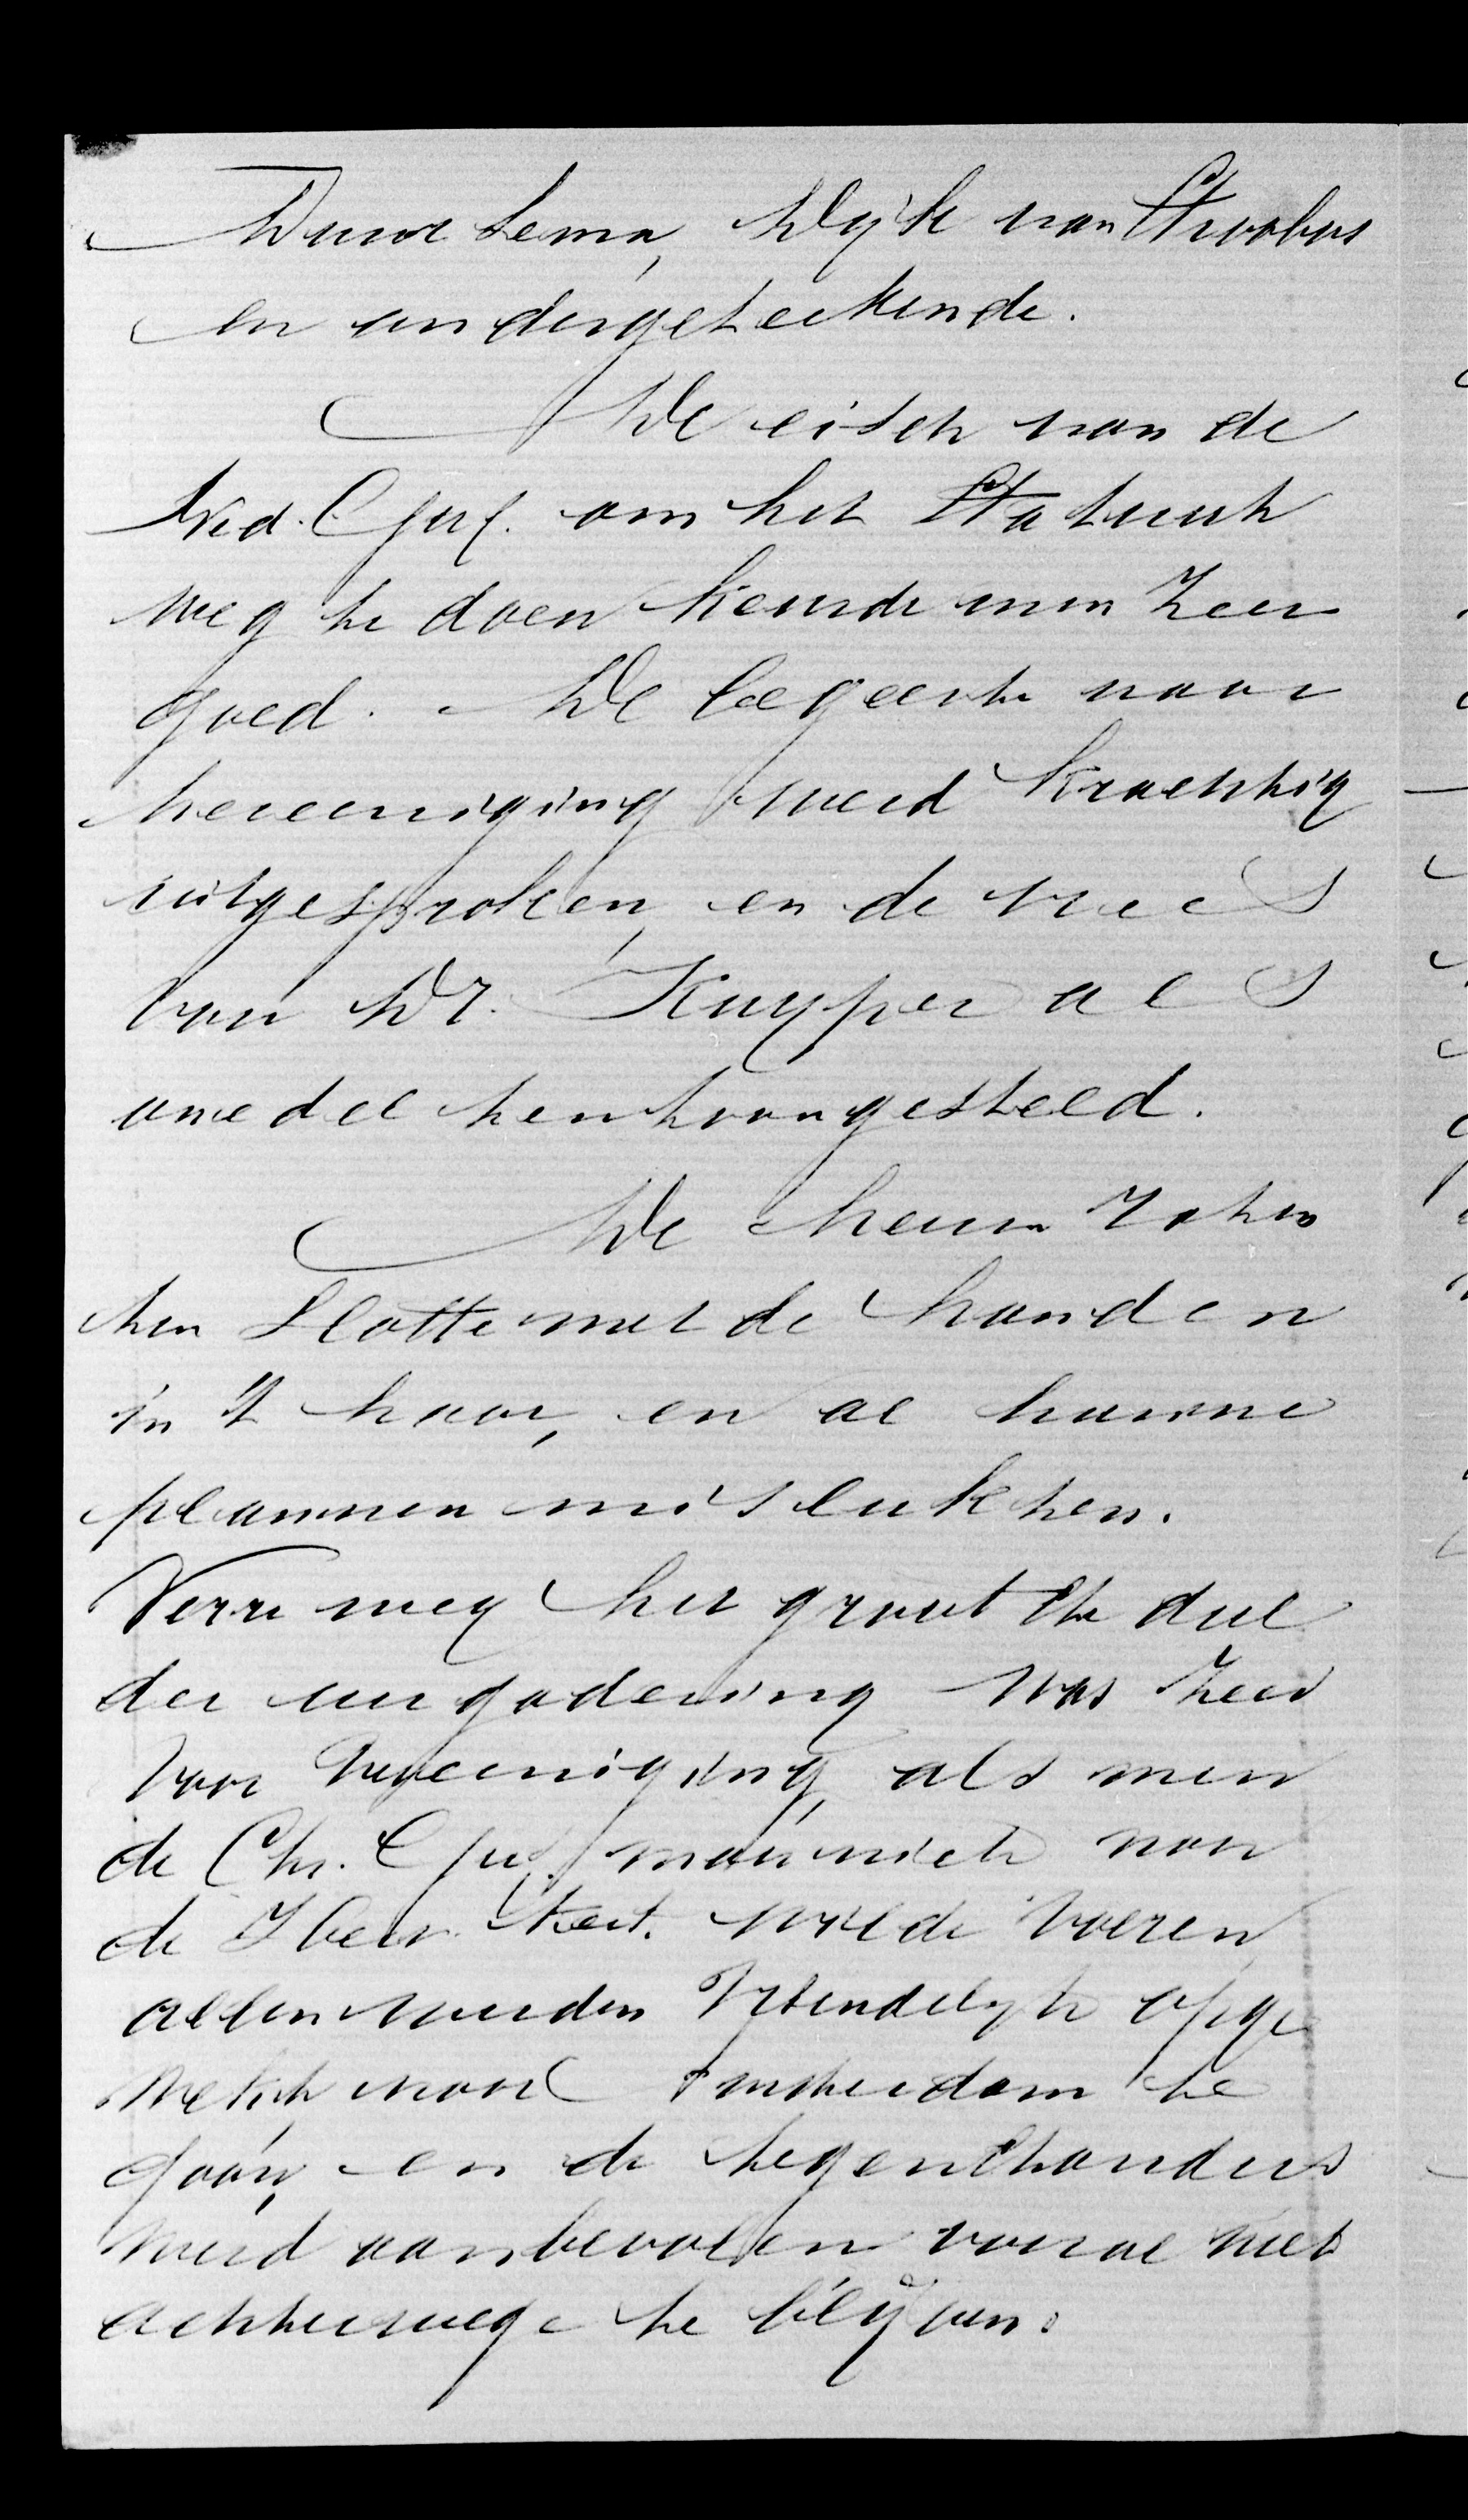 Duursema, Dijk van Stroobos
en ondergeteekende.
De eisch van de
Ned. Geref. om het Statuut
weg te doen keurde men zeer
goed. De begeerte naar
hereeniging werd krachtig
uitgesproken, en de vrees
van Dr. Kuyper als
onedel tentoongesteld.
De heeren zaten
ten slotte met de handen
in 't haar, en al hunne
plannen mislukten.
Verre weg het grootste deel
der vergadering was zeer
voor hereeniging, als men
de Chr. Geref. maar niet van
de Kerk. wilde
allen werden vriendelijk opge
wekt naar Amsterdam te
gaan, en de tegenstanders
werd aanbevolen vooral niet
achterwege te blijven.